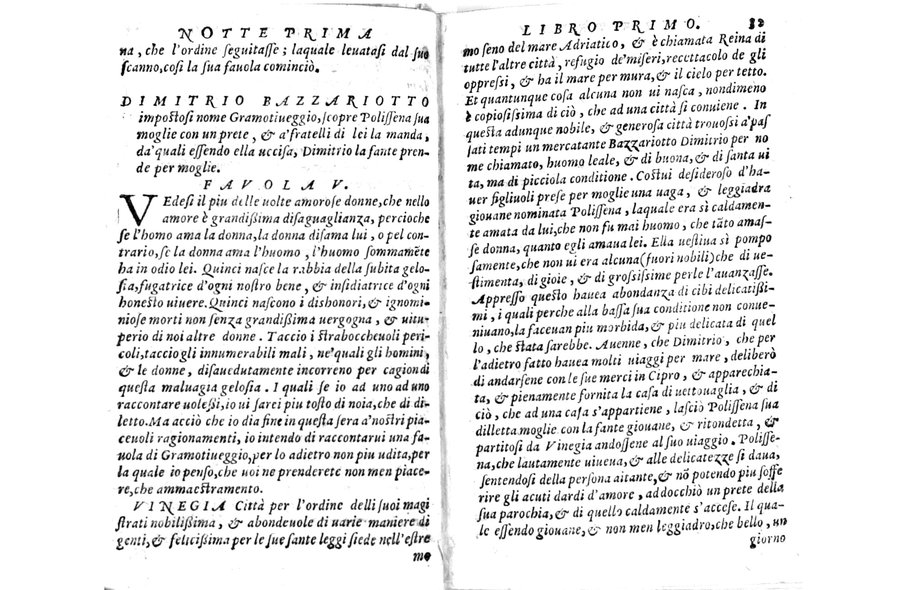 NOTTE PRIMA
na, che l'ordine ſeguitaſſe; laquale leuataſi dal ſuo
ſcanno, coſi la ſua fauola cominciò.
DIMITRIO BAZZARIOTTO
impoſtoſi nome Gramotiueggio, ſcopre Poliſſena ſua
moglie con un prete, & a' fratelli di lei la manda,
da' quali eſſendo ella ucciſa, Dimitrio la fante pren-
de per moglie.
FAVOLA V.
VEdeſi il piu delle uolte amoroſe donne, che nello
amore è grandiſſima diſaguaglianza, percioche
ſe l'homo ama la donna, la donna diſama lui, o pel con-
trario, ſe la donna ama l'huomo, l'huomo ſommamẽte
ha in odio lei. Quinci naſce la rabbia della ſubita gelo-
ſia, fugatrice d'ogni noſtro bene, & inſidiatrice d'ogni
honeſto uiuere. Quinci naſcono i dishonori, & ignomi-
nioſe morti non ſenza grandiſſima uergogna, & uitu-
perio di noi altre donne. Taccio i ſtraboccheuoli peri-
coli, taccio gli innumerabili mali, ne' quali gli homini,
& le donne, diſauedutamente incorreno per cagion di
queſta maluagia geloſia. I quali ſe io ad uno ad uno
raccontare uoleſſi, io ui ſarei piu toſto di noia, che di di-
letto. Ma acciò che io dia fine in queſta ſera a' noſtri pia-
ceuoli ragionamenti, io intendo di raccontarui una fa-
uola di Gramotiueggio, per lo adietro non piu udita, per
la quale io penſo, che uoi ne prenderete non men piace-
re, che ammaeſtramento.
VINEGIA Città per l'ordine delli ſuoi magi
ſtrati nobiliſſima, & abondeuole di uarie maniere di
genti, & feliciſſima per le ſue ſante leggi ſiede nell'eſtre
mo
LIBRO PRIMO. 32
mo ſeno del mare Adriatico, & è chiamata Reina di
tutte l'altre città, refugio de' miſeri, recettacolo de gli
oppreſſi, & ha il mare per mura, & il cielo per tetto.
Et quantunque coſa alcuna non ui naſca, nondimeno
è copioſiſſima di ciò, che ad una città ſi conuiene. In
queſta adunque nobile, & generoſa città trouoſſi a' paſ
ſati tempi un mercatante Bazzariotto Dimitrio per no
me chiamato, huomo leale, & di buona, & di ſanta ui
ta, ma di picciola conditione. Coſtui deſideroſo d'ha-
uer figliuoli preſe per moglie una uaga, & leggiadra
giouane nominata Poliſſena, laquale era sì caldamen-
te amata da lui, che non fu mai huomo, che tãto amaſ-
ſe donna, quanto egli amaua lei. Ella ueſtiua sì pompo
ſamente, che non ui era alcuna (fuori nobili) che di ue-
ſtimenta, di gioie, & di groſſiſſime perle l'auanzaſſe.
Appreſſo queſto hauea abondanza di cibi delicatiſſi-
mi, i quali perche alla baſſa ſua conditione non conue-
niuano, la faceuan piu morbida, & piu delicata di quel
lo, che ſtata ſarebbe. Auenne, che Dimitrio, che per
l'adietro fatto hauea molti uiaggi per mare, deliberò
di andarſene con le ſue merci in Cipro, & apparecchia-
ta, & pienamente fornita la caſa di uettouaglia, & di
ciò, che ad una caſa s'appartiene, laſciò Poliſſena ſua
dilletta moglie con la fante giouane, & ritondetta, &
partitoſi da Vinegia andoſſene al ſuo uiaggio. Poliſſe-
na, che lautamente uiueua, & alle delicatezze ſi daua,
ſentendoſi della perſona aitante, & nõ potendo piu ſoffe
rire gli acuti dardi d'amore, adocchiò un prete della
ſua parochia, & di quello caldamente s'acceſe. Il qua-
le eſſendo giouane, & non men leggiadro, che bello, un
giorno